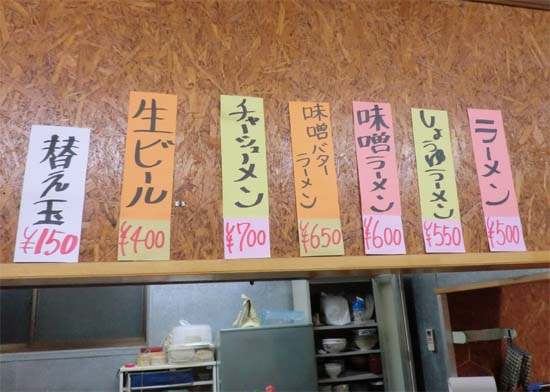 ラーメン
¥500
しょうゆラーメン
¥550
味噌ラーメン
¥600
味噌バター
ラーメン
¥650
チャーシューメン
¥700
生ビール
¥400
替え玉
¥150